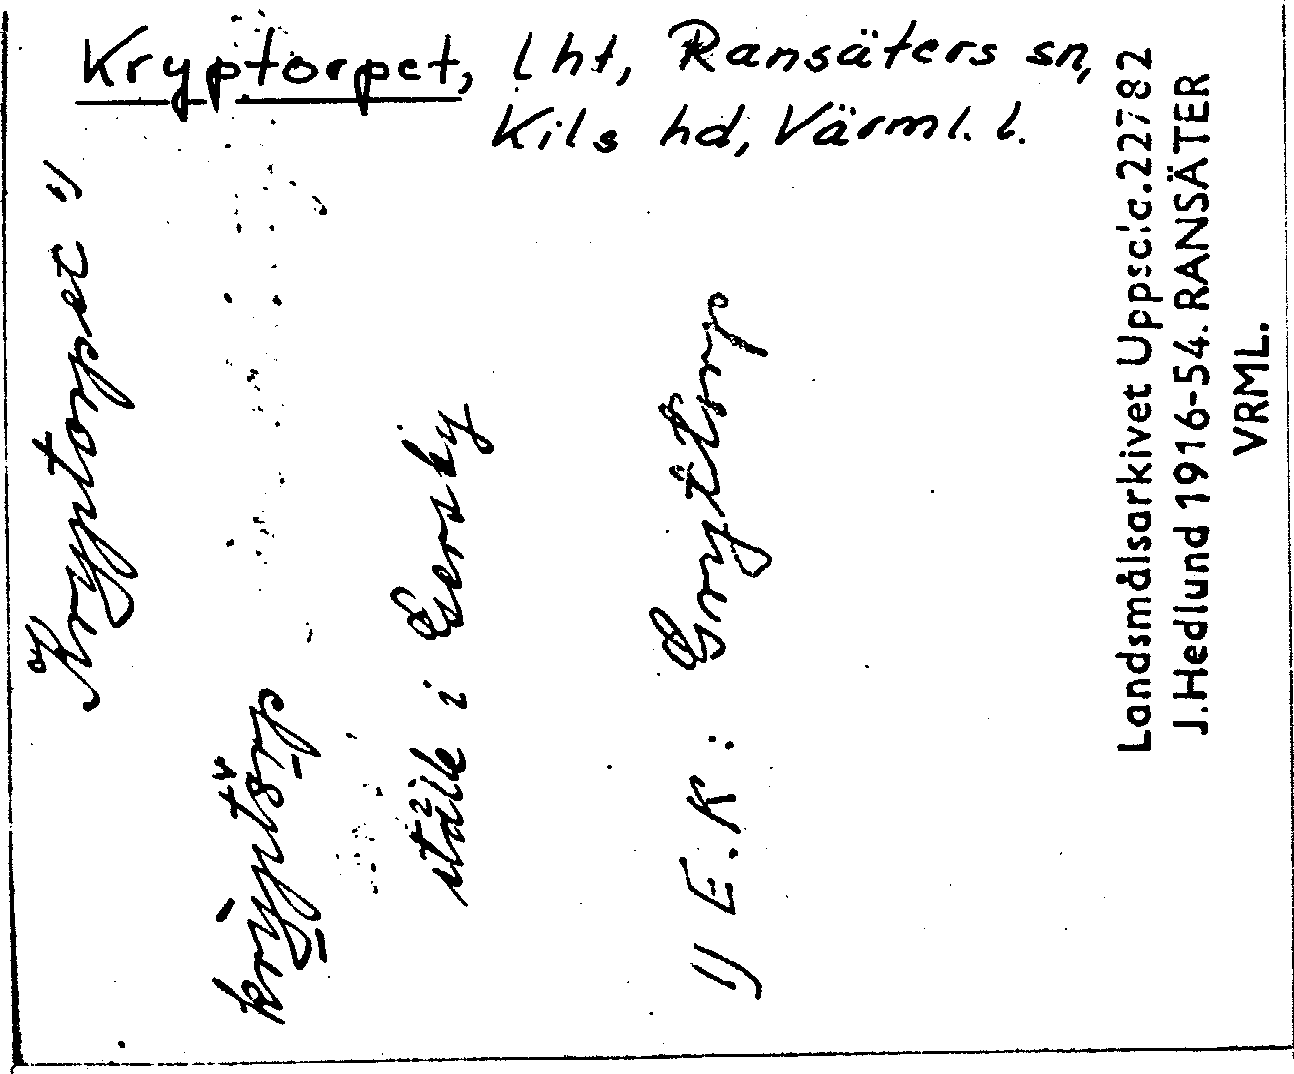 Kryptorpet, lht, Ransäters sn,
Kils hd, Värml. l.
Kryptorpet 1)
ställe i Gersby
1) E.K: Gryttorp
Landsmålsarkivet Uppsala d.c.227:82
J.Hedlund 1916-54. RANSÄTER
VRML.